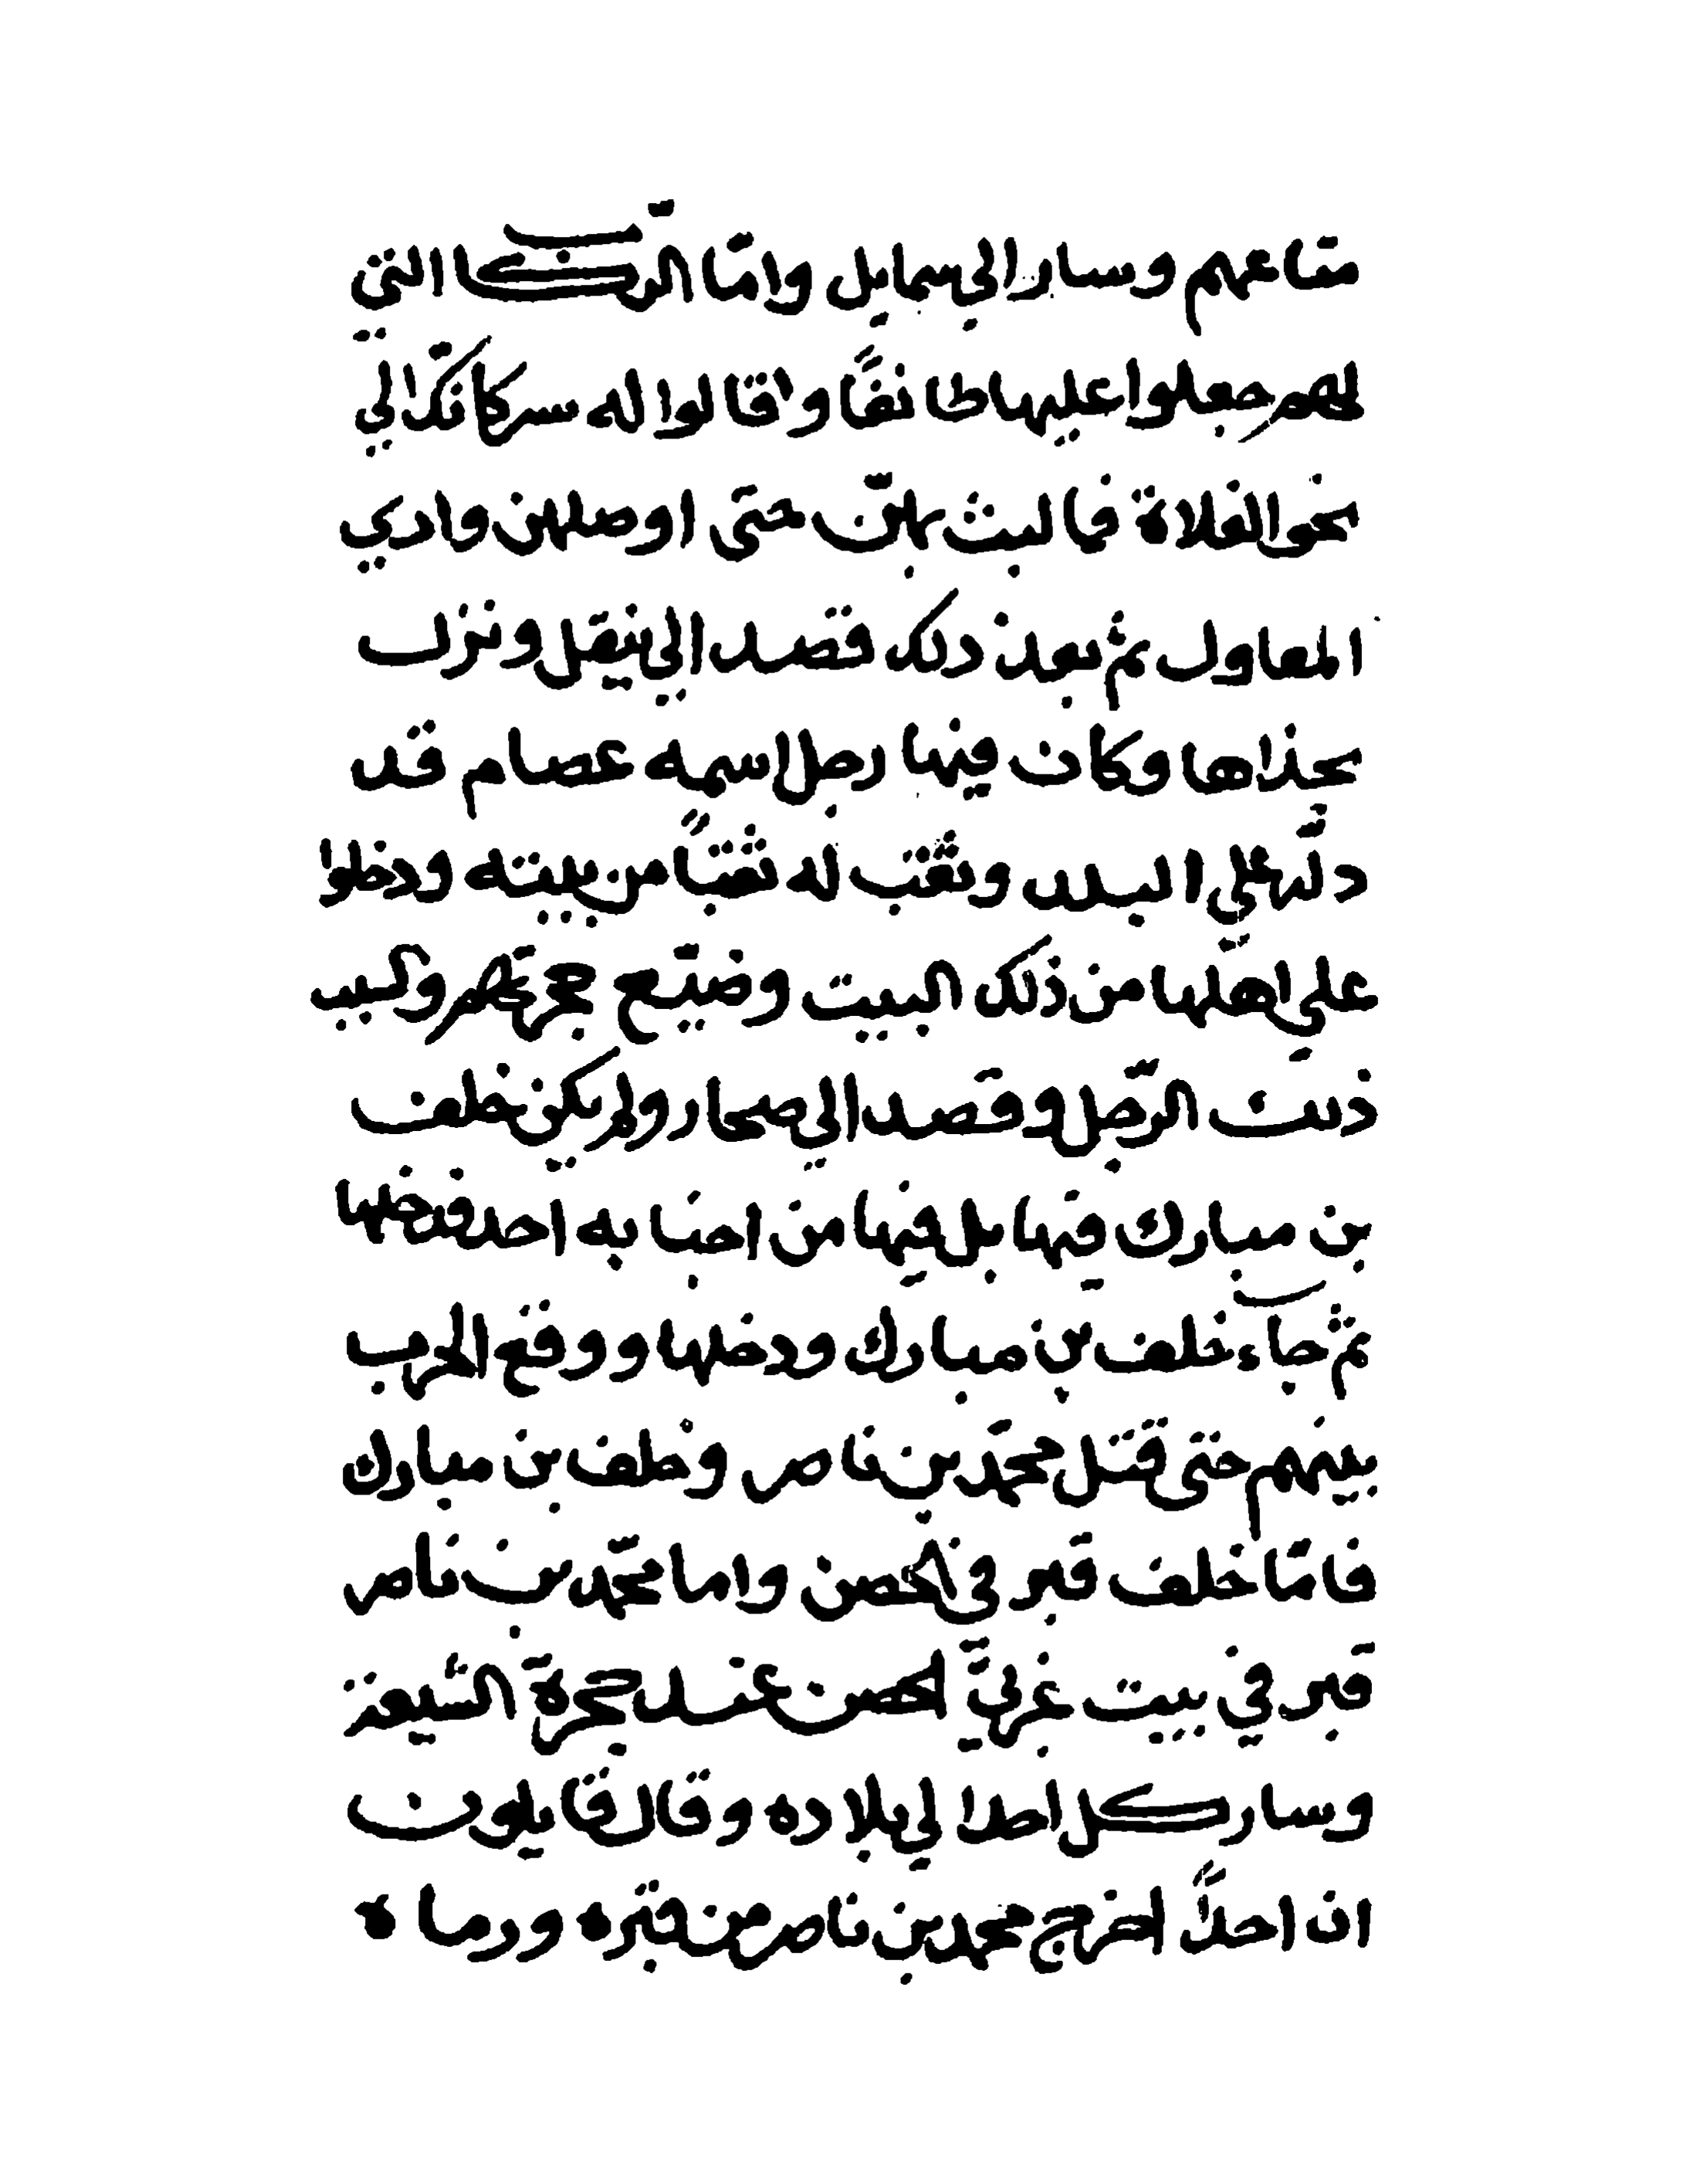 متاعهم وسار الي سمايل وامّا الركا التي
لهم جعلوا عليها طائفًا وقالوا له سر كانّك الي
نحو الفلاة فما لبث بهنّ حتى اوصلهن وادي
المعاول ثم بعد ذلك قصد الي ينقل ونزل
بحذاها وكان فيها رجل اسمه عصام قد
دلّهم علي البلد ونقب له نقبًا من بيته ودخلوا
علي اهلها من ذلك البيت وضيّع وكسب
الرّجل وقصد الي صحار ولم يكن خلف
بن مبارك فيها بل فيها من اصحابه احد فقبضها
ثم جاء خلف بن مبارك ودخلها ووقع الحرب
بينهم حتى قتل محمّد بن ناصر وخلف بن مبارك
فامّا خلف قبر في الحصن واما محمّد بن ناصر
قبر في بيت غربيّ الحصن عند حجرة الشيعة
وسار كل احد الي بلاده وقال قايلون
ان احدًا اخرج محمد بن ناصر من قبره ورماه